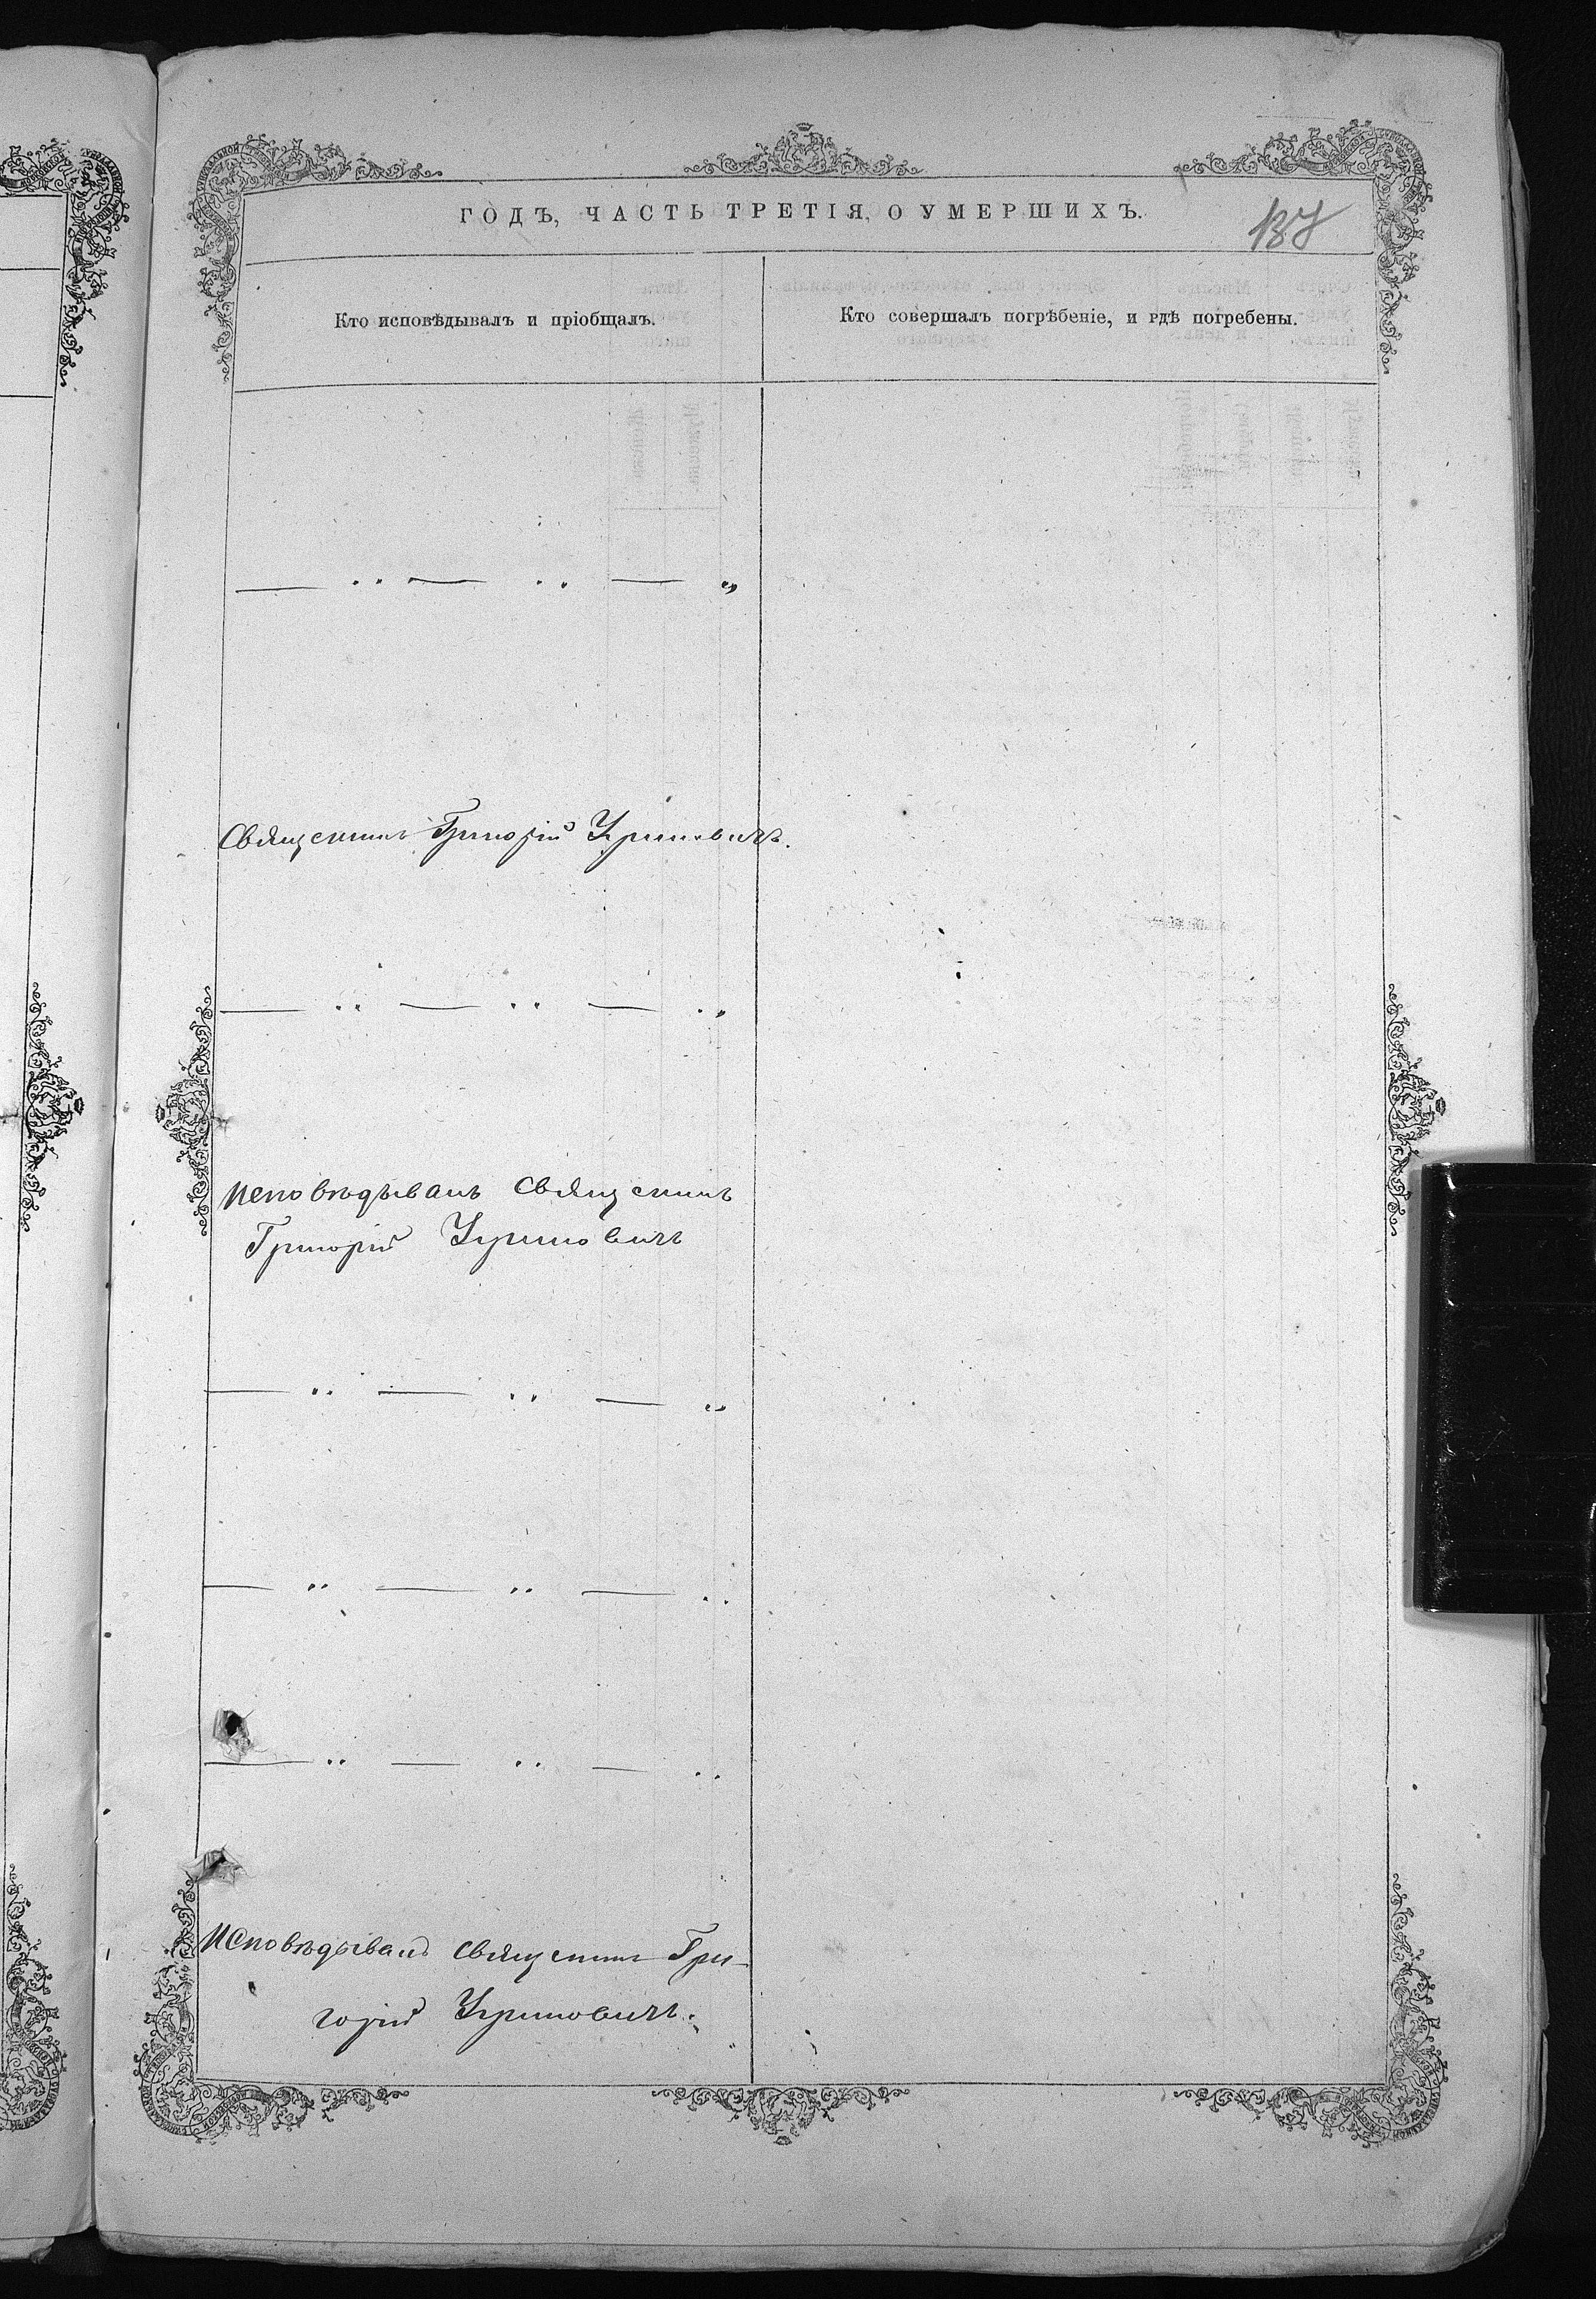 ГОДЪ, ЧАСТЬ ТРЕТІЯ, О УМЕРШИХЪ.
187
Кто исповѣдывалъ и пріобщалъ.
Кто совершалъ погрѣбеніе, и гдѣ погребены.
— „ — „ — „
Священникъ Григорій
— „ — „ — „
Исповѣдывалъ Священникъ
Григорій
— „ — „ — „
— „ — „ — „
— „ — „ — „
Исповѣдывалъ Священникъ Гри-
горій